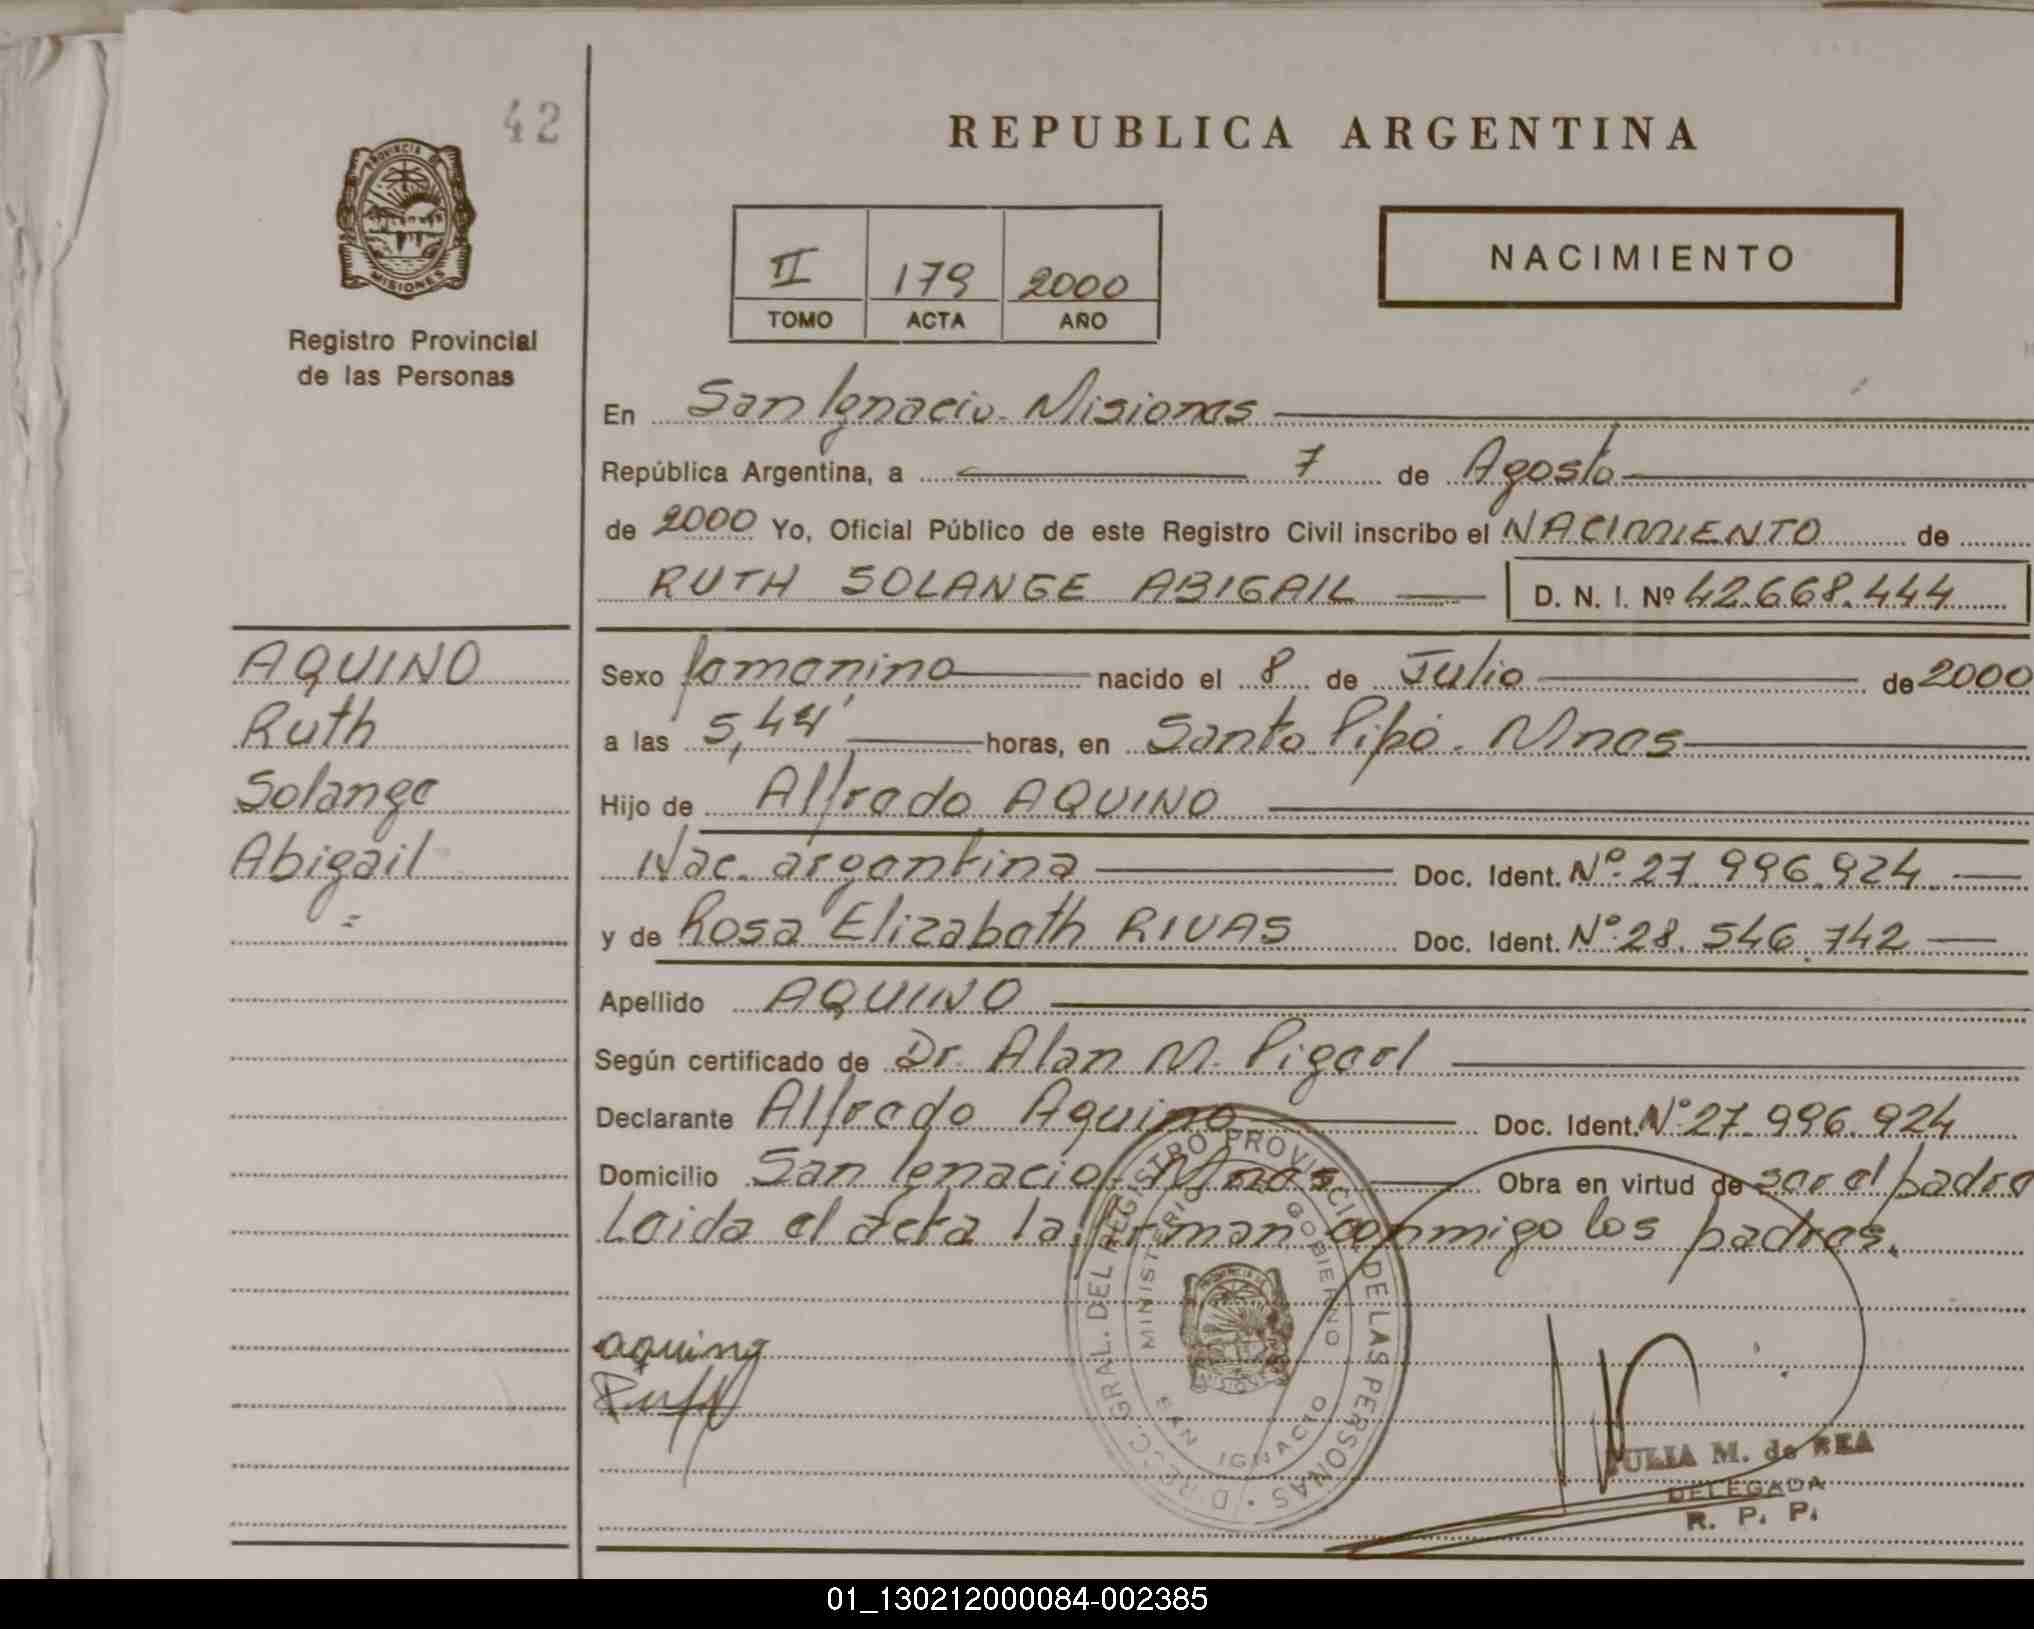 42
PROVINCIA DE
MISIONES
Registro Provincial
de las Personas
REPUBLICA ARGENTINA
II 179 2000
TOMO ACTA AÑO
NACIMIENTO
En San Ignacio - Misiones
República Argentina, a 7 de Agosto
de 2000 Yo, Oficial Público de este Registro Civil inscribo el NACIMIENTO de
RUTH SOLANGE ABIGAIL D. N. I. Nº 42.668.444
AQUINO
Ruth
Solange
Abigail
Sexo femenino nacido el 8 de Julio de 2000
a las 5,44' horas, en Santo Pipó - Mnes
Hijo de Alfredo AQUINO
Nac. argentina Doc. Ident. Nº 27.996.924
y de Rosa Elizabeth RIVAS Doc. Ident. Nº 28.546.742
Apellido AQUINO
Según certificado de Dr. Alan M.
Declarante Alfredo Aquino Doc. Ident. Nº 27.996.924
Domicilio San Ignacio - Mnes Obra en virtud de ser el padre
Leida el acta la firman conmigo los padres.
aquino
DIRECC. GRAL. DEL REGISTRO PROVINCIAL DE LAS PERSONAS
MINISTERIO GOBIERNO
SAN IGNACIO
JULIA M. de REA
DELEGADA
R. P. P.
01_130212000084-002385